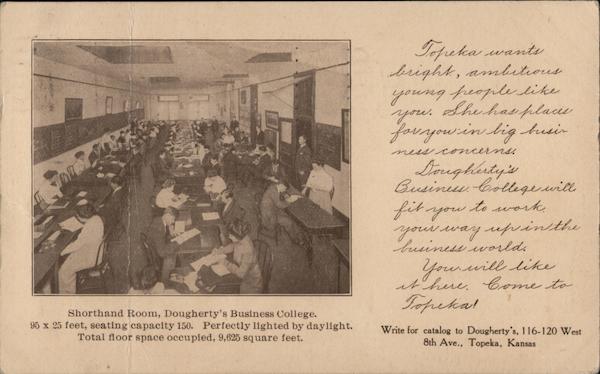 Topeka wants
bright, ambitious
young people like
you. She has places
for you in big busi-
ness concerns.
Dougherty's
Business College will
fit you to work
your way up in the
business world.
You will like
it here. Come to
Topeka!
Shorthand Room, Dougherty's Business College.
95 x 25 feet, seating capacity 150. Perfectly lighted by daylight.
Total floor space occupied, 9,625 square feet.
Write for catalog to Dougherty's, 116-120 West
8th Ave., Topeka, Kansas